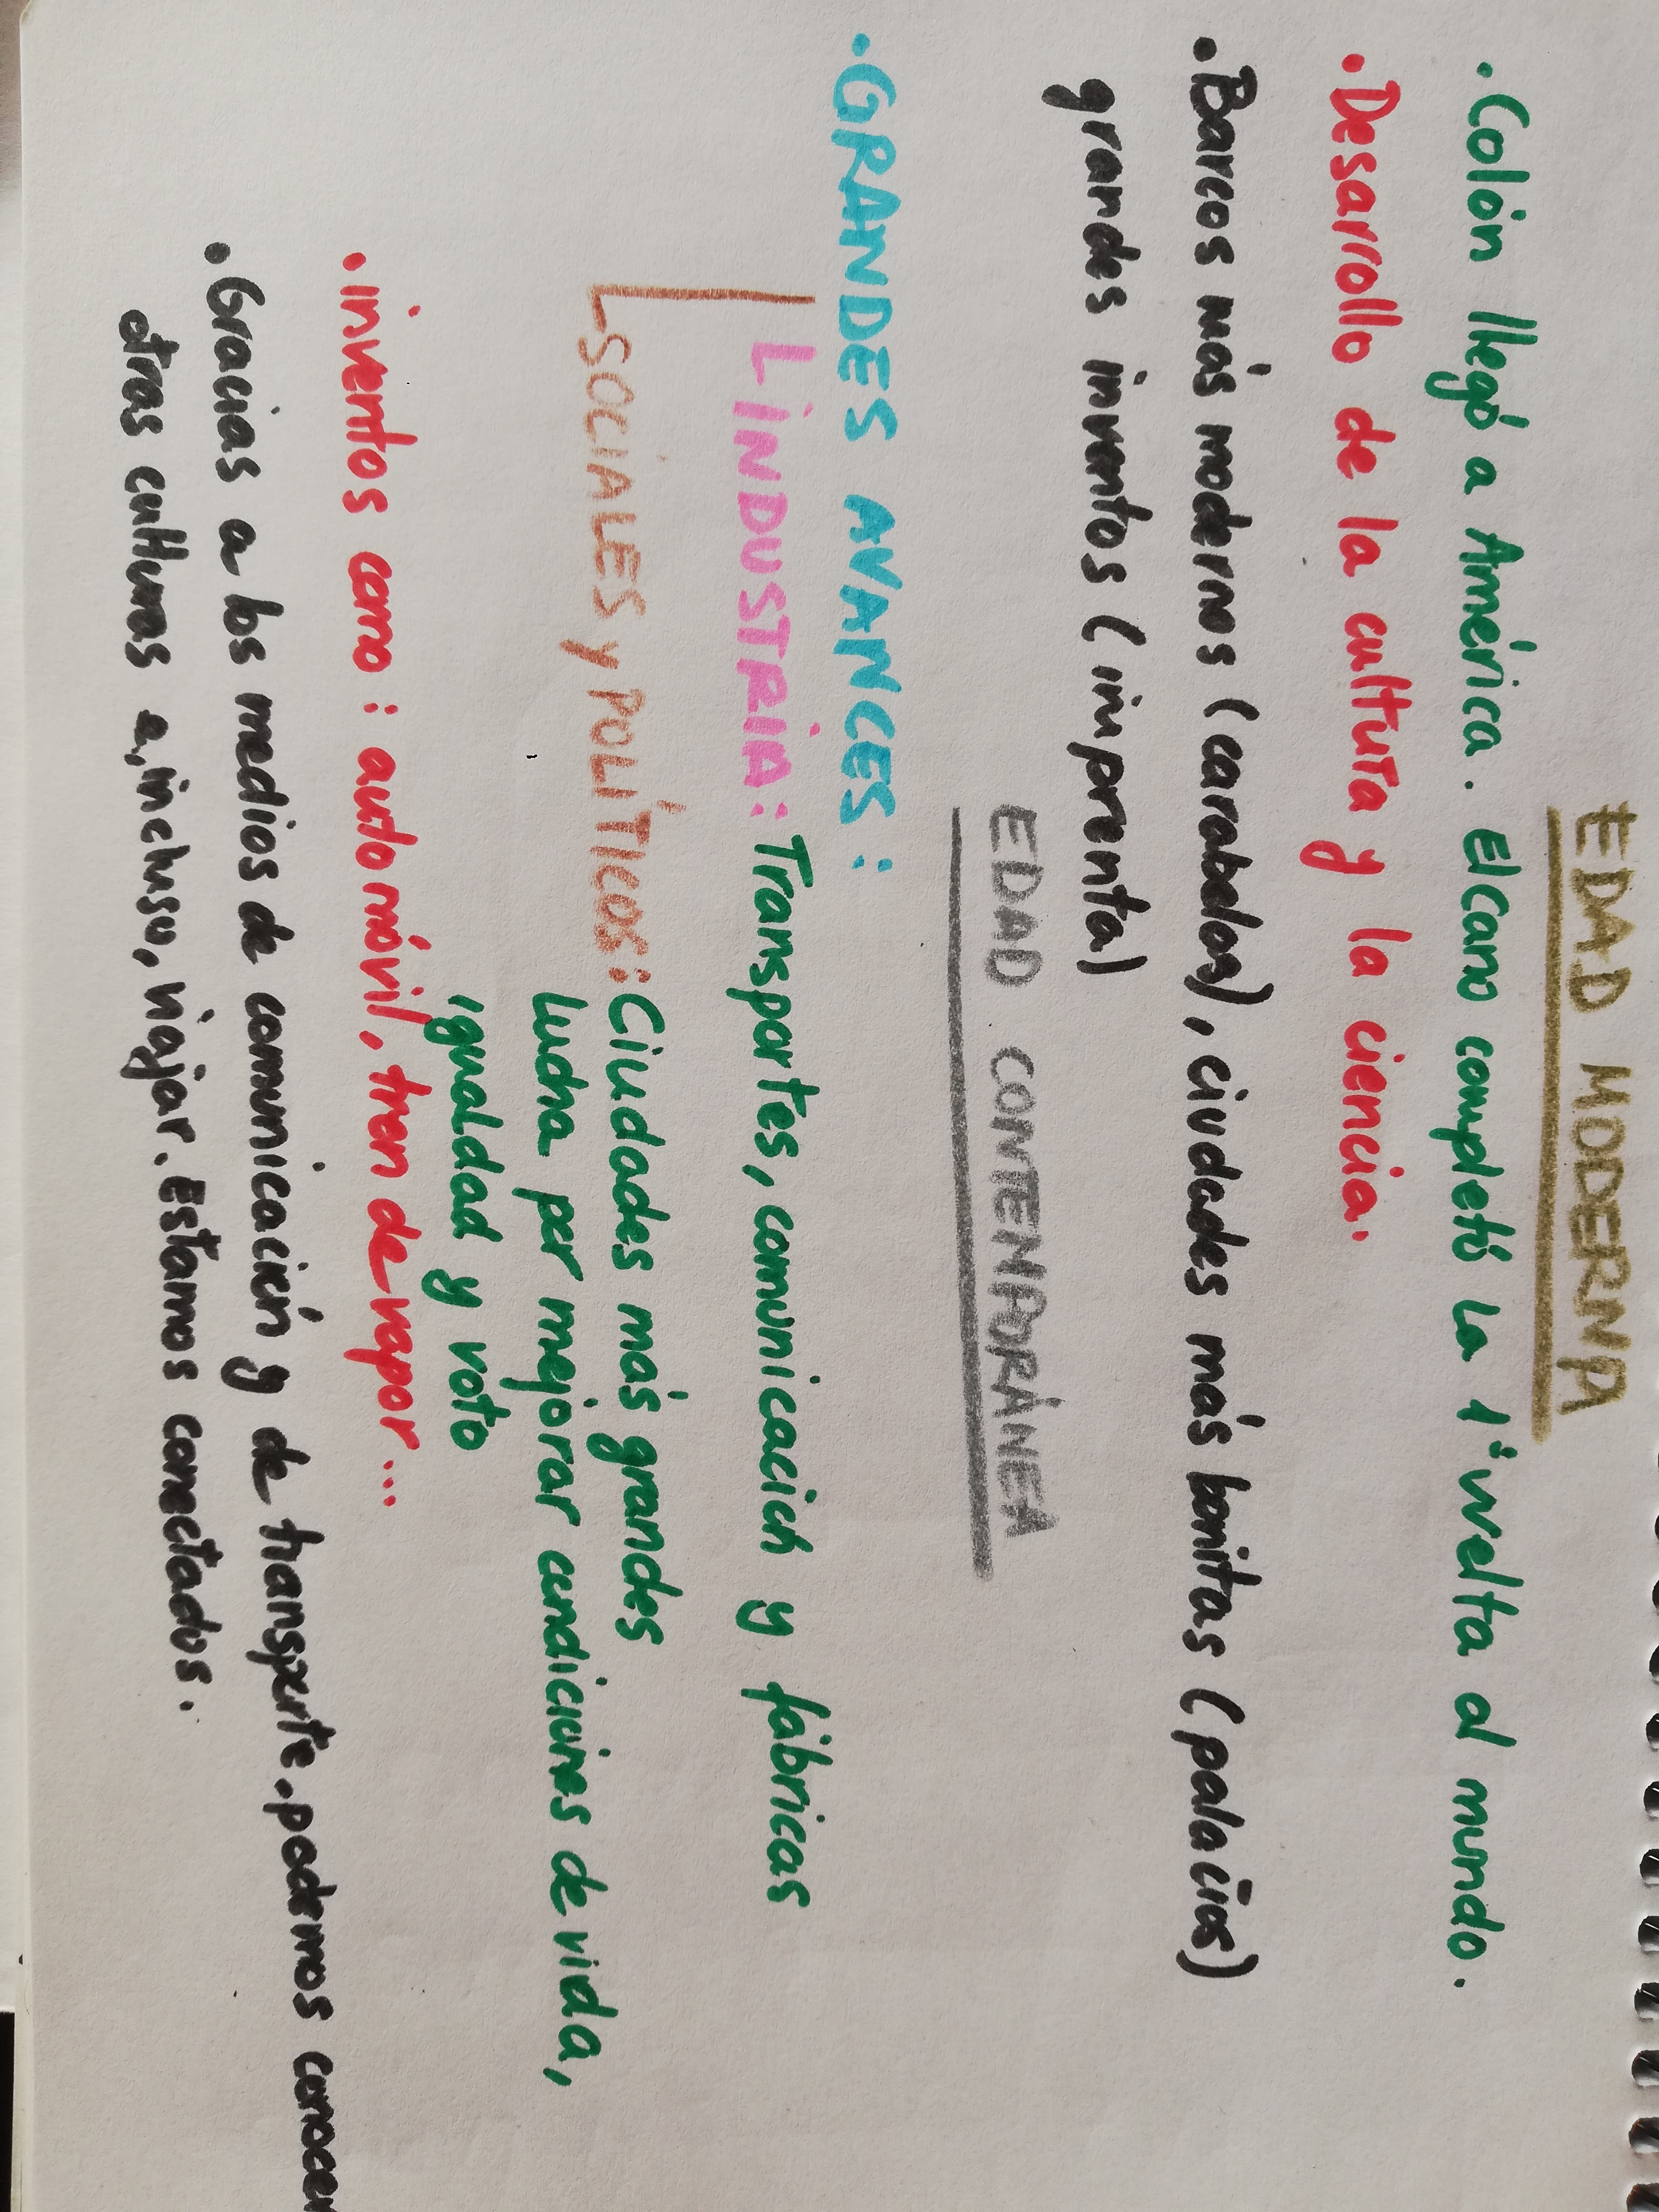 EDAD MODERNA
·Colón llegó a América. ElCano completó la 1ª vuelta al mundo.
·Desarrollo de la cultura y la ciencia.
·Barcos más modernos (carabelas), ciudades más bonitas (palacios)
grandes inventos (imprenta)
EDAD CONTENPORÁNEA
·GRANDES AVANCES:
INDUSTRIA: Transportes, comunicación y fábricas
SOCIALES y POLÍTICOS: Ciudades más grandes
lucha por mejorar condiciones de vida,
igualdad y voto
·inventos como: automóvil, tren de vapor...
·Gracias a los medios de comunicación y de transporte.podemos conocer
otras culturas e,incluso, viajar. Estamos conectados.